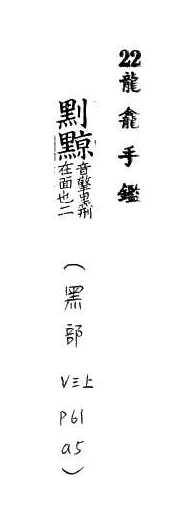 22龍龕手鑑
剠黥音擎黑刑在面也二
(黑部 V三上 P61 a5)